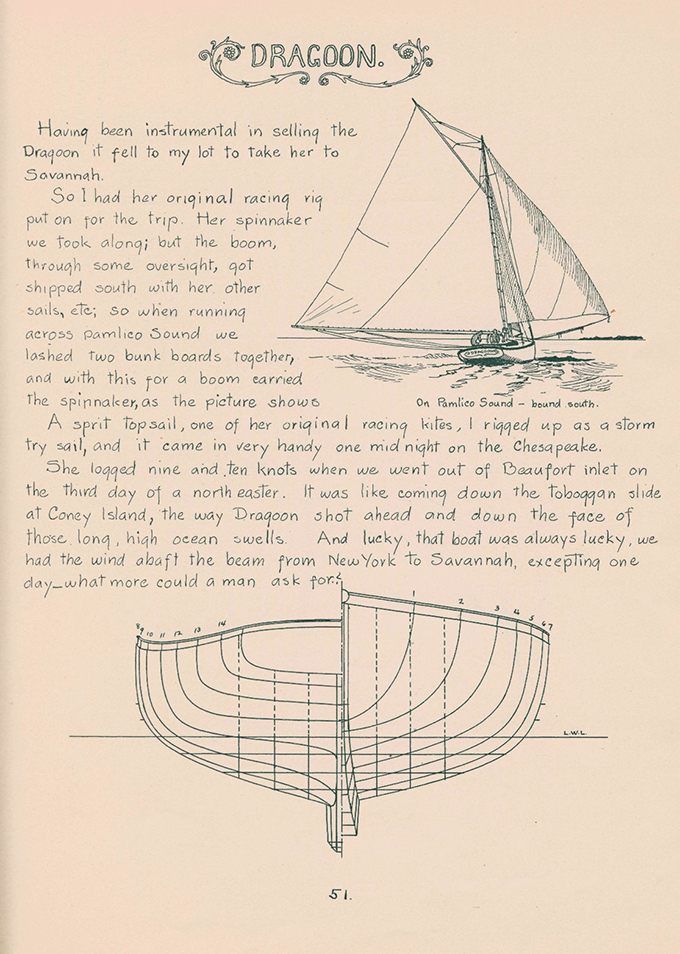 DRAGOON.
Having been instrumental in selling the
Dragoon it fell to my lot to take her to
Savannah.
So I had her original racing rig
put on for the trip. Her spinnaker
we took along; but the boom,
through some oversight, got
shipped south with her other
sails, etc; so when running
across pamlico Sound we
lashed two bunk boards together,
and with this for a boom carried
the spinnaker, as the picture shows
DRAGOON
On Pamlico Sound - bound south.
A sprit topsail, one of her original racing kites, I rigged up as a storm
try sail, and it came in very handy one midnight on the Chesapeake.
She logged nine and ten knots when we went out of Beaufort inlet on
the third day of a north easter. It was like coming down the toboggan slide
at Coney Island, the way Dragoon shot ahead and down the face of
those long, high ocean swells. And lucky, that boat was always lucky, we
had the wind abaft the beam from New York to Savannah, excepting one
day—what more could a man ask for?
8 9 10 11 12 13 14 1 2 3 4 5 6 7
L.W.L.
51.